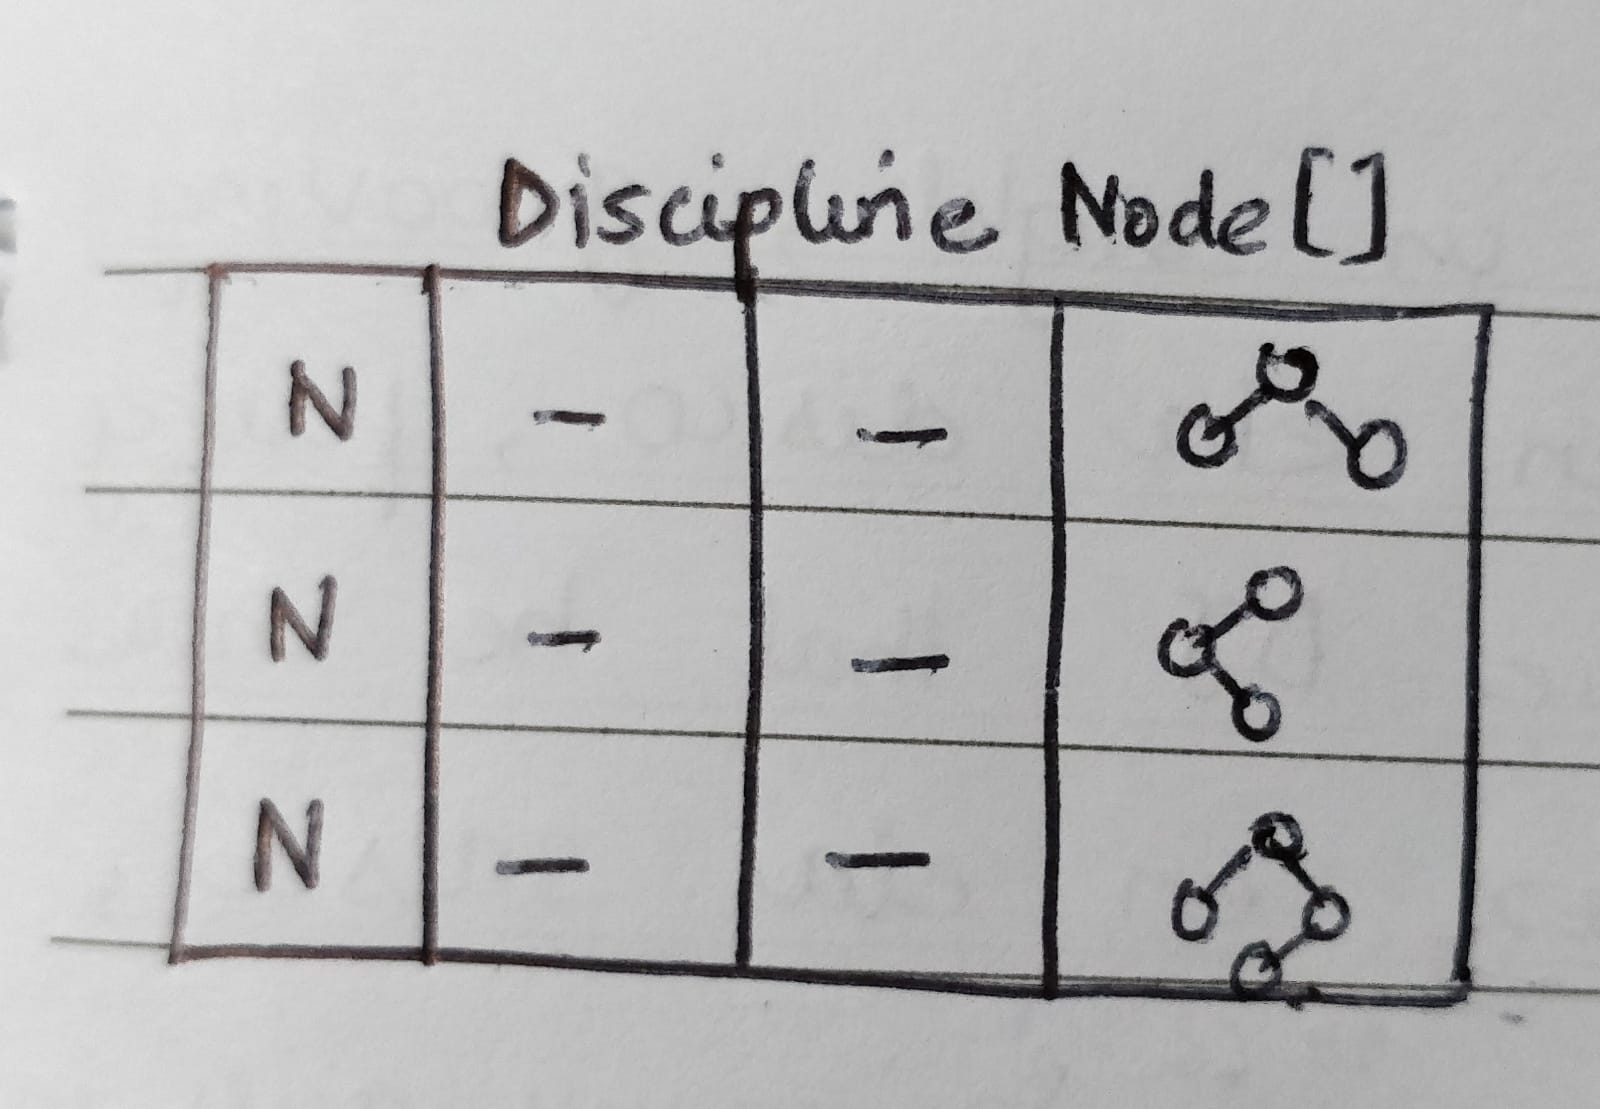 Discipline Node[]
N - -
N - -
N - -